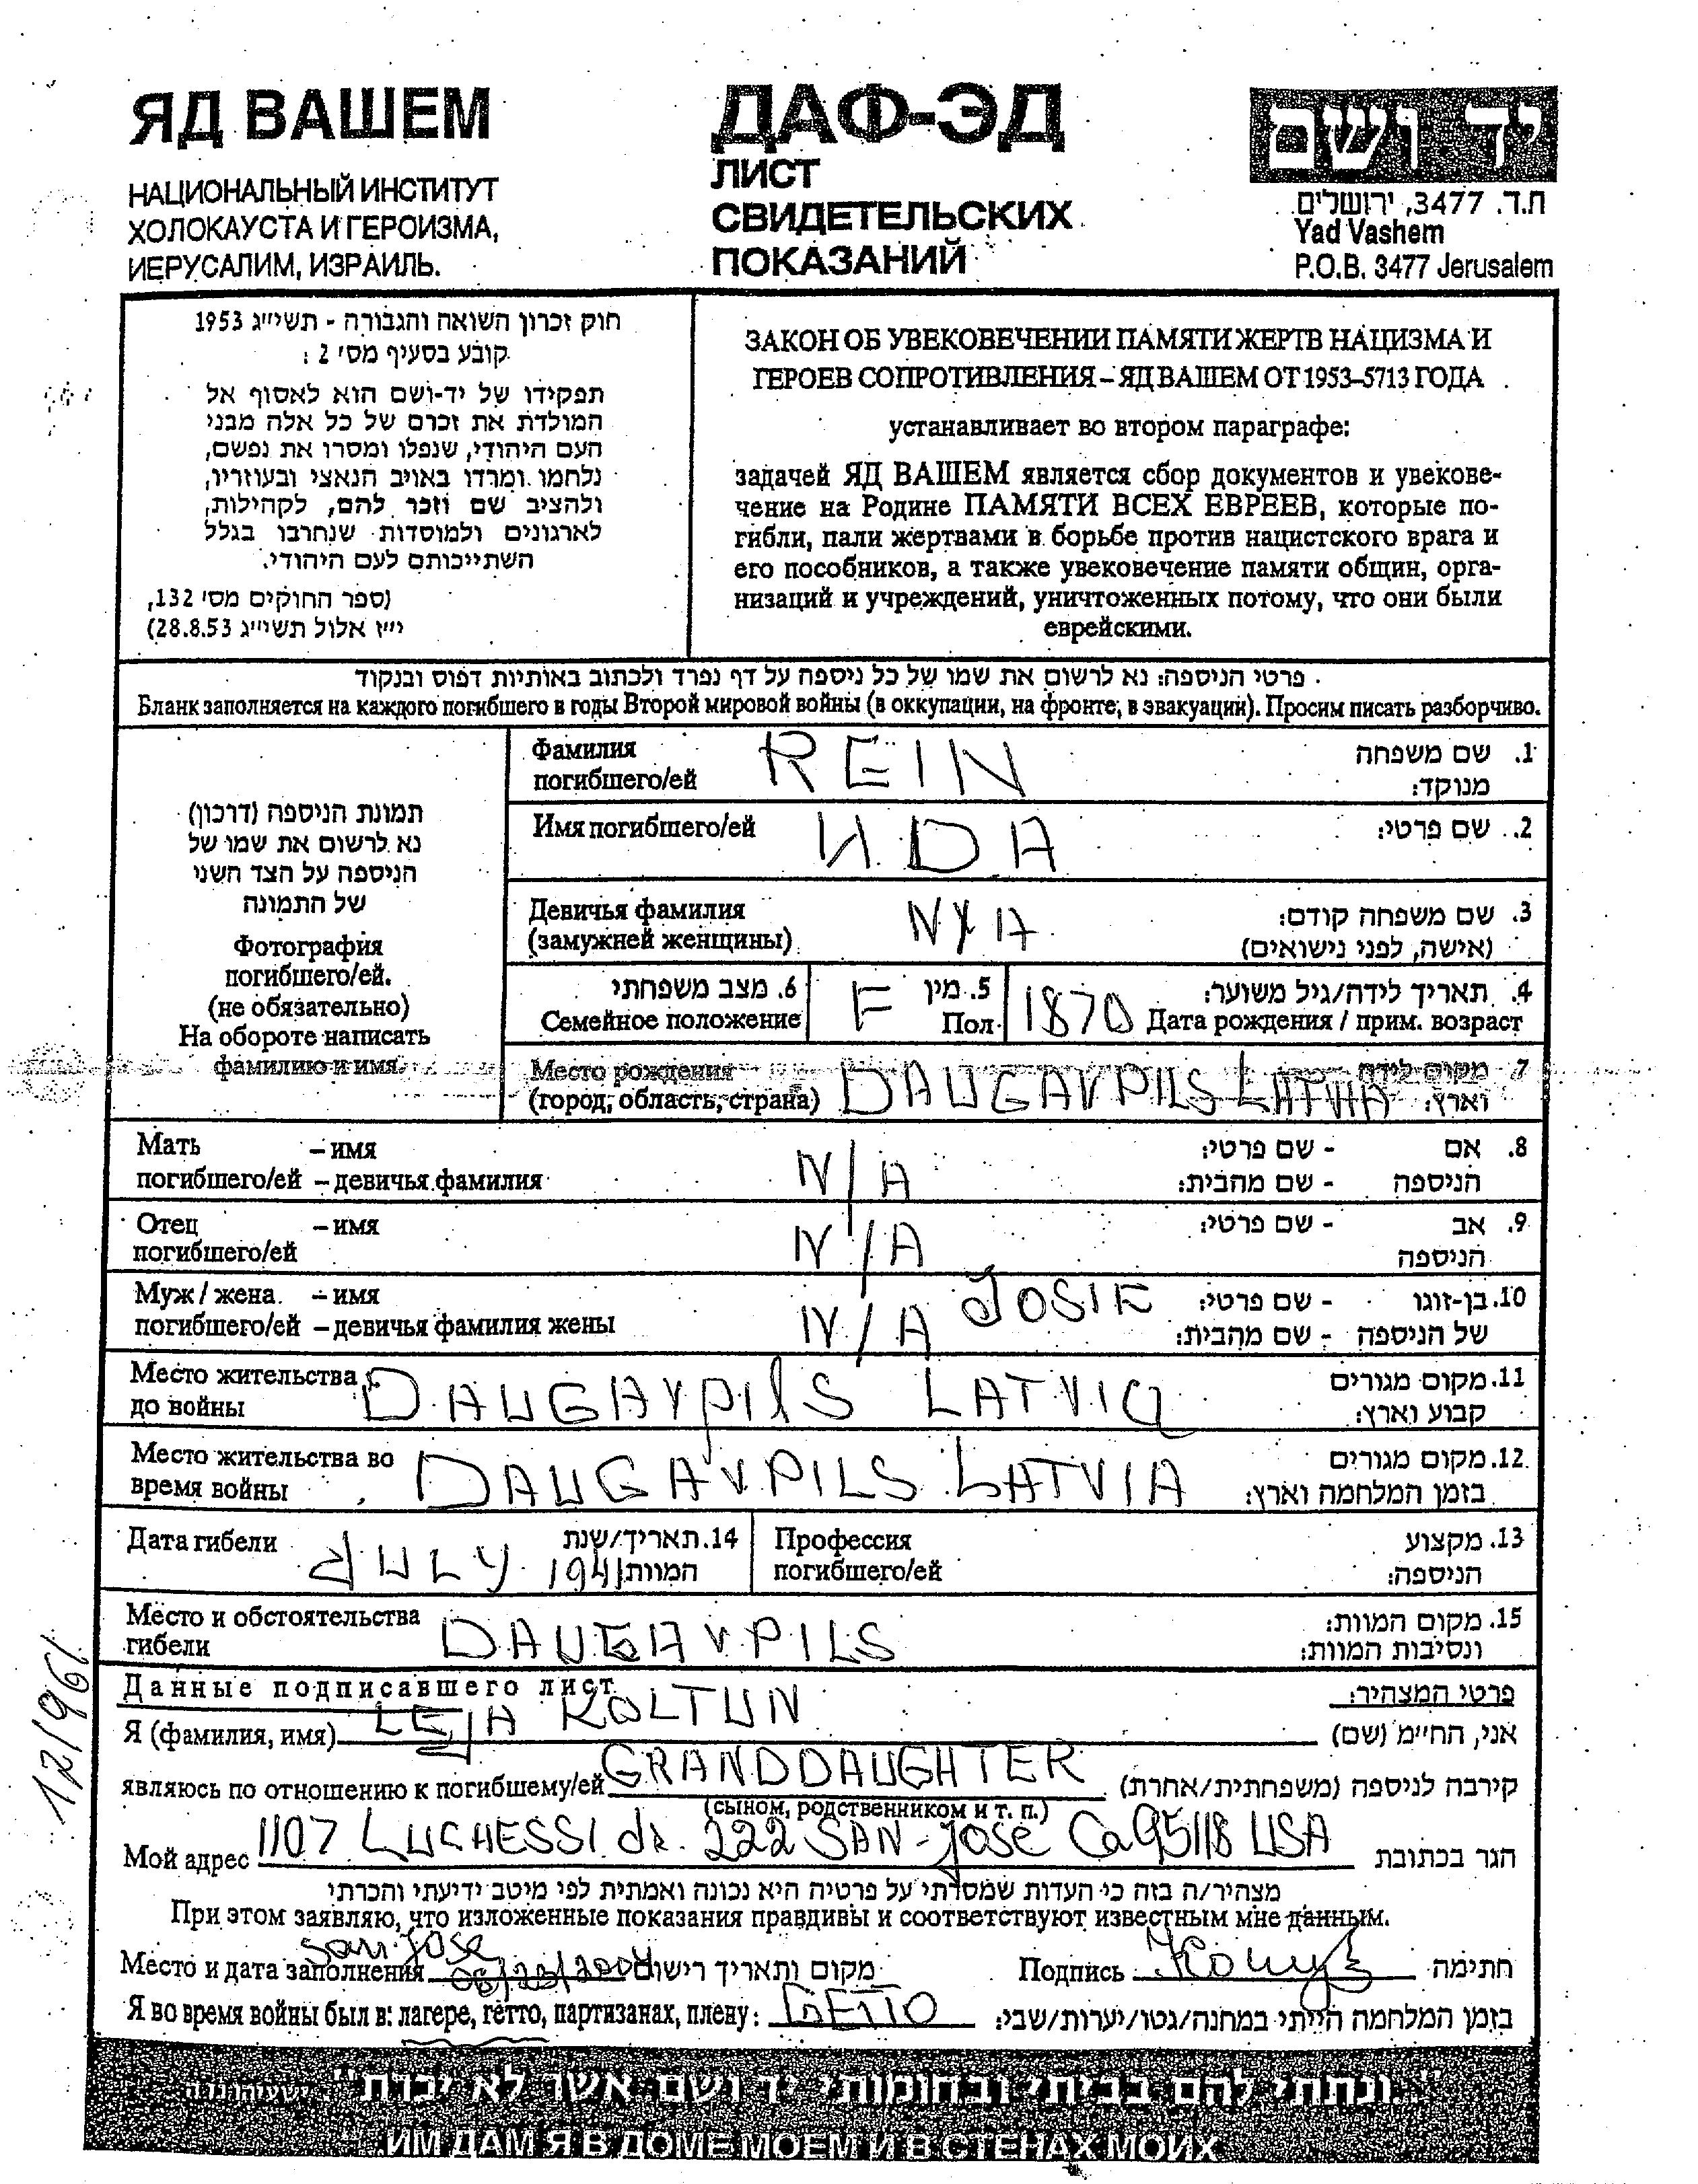 ЯД ВАШЕМ
НАЦИОНАЛЬНЫЙ ИНСТИТУТ
ХОЛОКАУСТА И ГЕРОИЗМА,
ИЕРУСАЛИМ, ИЗРАИЛЬ.
ДАФ-ЭД
ЛИСТ
СВИДЕТЕЛЬСКИХ
ПОКАЗАНИЙ
יד ושם
ת.ד. 3477, ירושלים
Yad Vashem
P.O.B. 3477 Jerusalem
חוק זכרון השואה והגבורה - תשי״ג 1953
קובע בסעיף מס' 2 :
תפקידו של יד-ושם הוא לאסוף אל
המולדת את זכרם של כל אלה מבני
העם היהודי, שנפלו ומסרו את נפשם,
נלחמו ומרדו באויב הנאצי ובעוזריו,
ולהציב שם וזכר להם, לקהילות,
לארגונים ולמוסדות שנחרבו בגלל
השתייכותם לעם היהודי.
(ספר החוקים מס' 132,
י״ז אלול תשי״ג 28.8.53)
ЗАКОН ОБ УВЕКОВЕЧЕНИИ ПАМЯТИ ЖЕРТВ НАЦИЗМА И
ГЕРОЕВ СОПРОТИВЛЕНИЯ – ЯД ВАШЕМ ОТ 1953–5713 ГОДА
устанавливает во втором параграфе:
задачей ЯД ВАШЕМ является сбор документов и увекове-
чение на Родине ПАМЯТИ ВСЕХ ЕВРЕЕВ, которые по-
гибли, пали жертвами в борьбе против нацистского врага и
его пособников, а также увековечение памяти общин, орга-
низаций и учреждений, уничтоженных потому, что они были
еврейскими.
פרטי הניספה: נא לרשום את שמו של כל ניספה על דף נפרד ולכתוב באותיות דפוס ובנקוד
Бланк заполняется на каждого погибшего в годы Второй мировой войны (в оккупации, на фронте, в эвакуации). Просим писать разборчиво.
תמונת הניספה (דרכון)
נא לרשום את שמו של
הניספה על הצד השני
של התמונה
Фотография
погибшего/ей.
(не обязательно)
На обороте написать
фамилию и имя.
Фамилия REIN 1. שם משפחה
погибшего/ей מנוקד:
Имя погибшего/ей ИDA 2. שם פרטי:
Девичья фамилия N/A 3. שם משפחה קודם:
(замужней женщины) (אישה, לפני נישואים)
6. מצב משפחתי F 5. מין 1870 4. תאריך לידה/גיל משוער:
Семейное положение Пол Дата рождения / прим. возраст
Место рождения DAUGAVPILS LATVIA 7. מקום לידה
(город, область, страна) וארץ:
Мать – имя N/A - שם פרטי: 8. אם
погибшего/ей – девичья фамилия - שם מהבית: הניספה
Отец – имя N/A - שם פרטי: 9. אב
погибшего/ей הניספה
Муж / жена – имя JOSIF - שם פרטי: 10. בן-זוגו
погибшего/ей – девичья фамилия жены N/A - שם מהבית: של הניספה
Место жительства DAUGAVPIlS LATVIa 11. מקום מגורים
до войны קבוע וארץ:
Место жительства во DAUGAVPILS LATVIA 12. מקום מגורים
время войны בזמן המלחמה וארץ:
Дата гибели JULY 1941 14. תאריך/שנת המוות Профессия 13. מקצוע
погибшего/ей הניספה:
Место и обстоятельства DAUGAVPILS 15. מקום המוות:
гибели ונסיבות המוות:
Данные подписавшего лист פרטי המצהיר:
Я (фамилия, имя) LEJA KOLTUN אני, החיימ (שם)
являюсь по отношению к погибшему/ей GRANDDAUGHTER קירבה לניספה (משפחתית/אחרת)
(сыном, родственником и т. п.)
Мой адрес 1107 LUCHESSI dr. 222 SAN-JOSE Ca 95118 USA הגר בכתובת
מצהיר/ה בזה כי העדות שמסרתי על פרטיה היא נכונה ואמתית לפי מיטב ידיעתי והכרתי
При этом заявляю, что изложенные показания правдивы и соответствуют известным мне данным.
san jose
Место и дата заполнения מקום ותאריך רישום Подпись חתימה
Я во время войны был в: лагере, гетто, партизанах, плену: GETTO בזמן המלחמה הייתי במחנה/גטו/יערות/שבי:
"ונתתי להם בביתי ובחומותי יד ושם אשר לא יכרת"
ИМ ДАМ Я В ДОМЕ МОЕМ И В СТЕНАХ МОИХ
12/1961